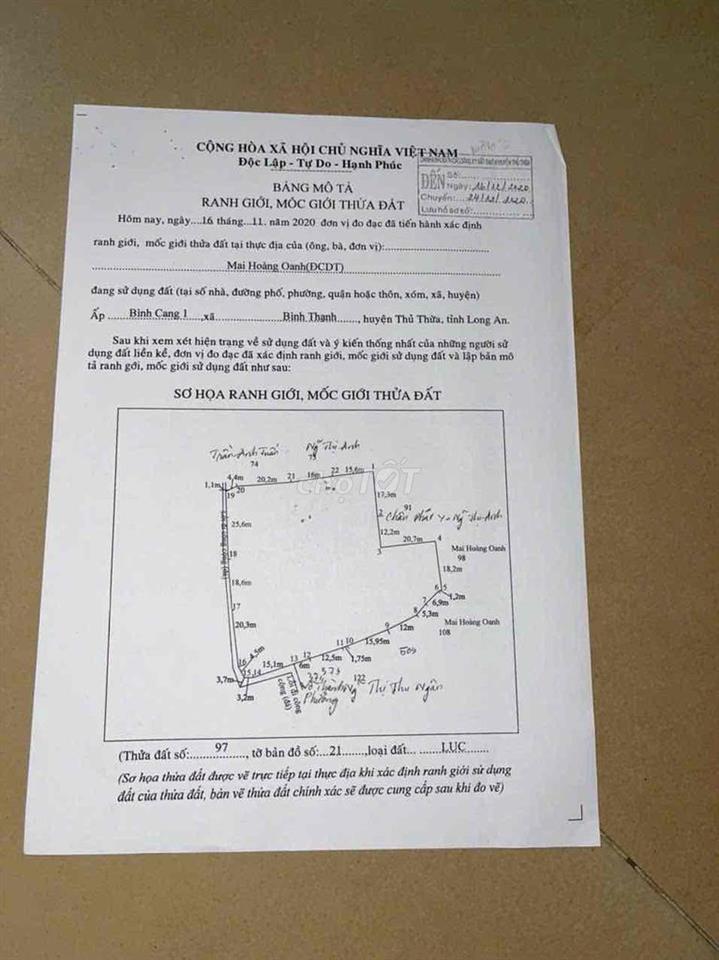 CỘNG HÒA XÃ HỘI CHỦ NGHĨA VIỆT NAM
Độc Lập - Tự Do - Hạnh Phúc
ĐẾN
Số:
Ngày: 16/12/2020
Chuyển: 24/12/2020
Lưu hồ sơ số:
BẢNG MÔ TẢ
RANH GIỚI, MỐC GIỚI THỬA ĐẤT
Hôm nay, ngày....16 tháng...11. năm 2020 đơn vị đo đạc đã tiến hành xác định
ranh giới, mốc giới thửa đất tại thực địa của (ông, bà, đơn vị):
Mai Hoàng Oanh(ĐCDT)
đang sử dụng đất (tại số nhà, đường phố, phường, quận hoặc thôn, xóm, xã, huyện)
Ấp Bình Cang 1, xã Bình Thạnh, huyện Thủ Thừa, tỉnh Long An.
Sau khi xem xét hiện trạng về sử dụng đất và ý kiến thống nhất của những người sử
dụng đất liền kề, đơn vị đo đạc đã xác định ranh giới, mốc giới sử dụng đất và lập bản mô
tả ranh gới, mốc giới sử dụng đất như sau:
SƠ HỌA RANH GIỚI, MỐC GIỚI THỬA ĐẤT
Trần Anh Tuấn
74
Ngô Thị Anh
75
1,1m 4,4m 20,2m 21 16m 22 15,6m 1
19 20
17,3m
2
91
12,2m
3
20,7m
4
Mai Hoàng Oanh
98
18,2m
6 5
1,2m
7 6,9m
8 5,3m
Mai Hoàng Oanh
108
9 12m
15,95m
11 10
1,75m
12,5m
12
13
6m
15,1m
15 14
4,5m
16
3,7m
3,2m
25,6m
18
18,6m
17
20,3m
Lối đi công
cộng (đá)
122
Phường
Thị Thu Ngân
CHỢ TỐT
(Thửa đất số: 97, tờ bản đồ số:...21......,loại đất.......LUC......
(Sơ họa thửa đất được vẽ trực tiếp tại thực địa khi xác định ranh giới sử dụng
đất của thửa đất, bản vẽ thửa đất chính xác sẽ được cung cấp sau khi đo vẽ)